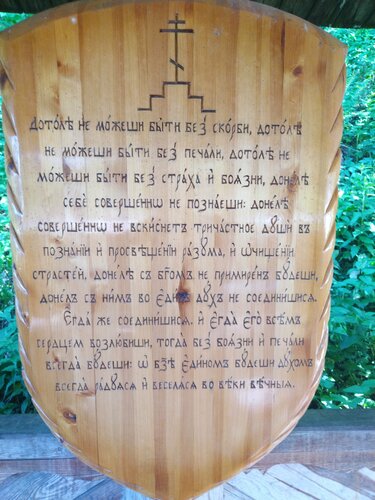 Дото́лѣ не мо́жеши бы́ти без̾ ско́рби, дото́лѣ
не мо́жеши бы́ти без̾ печа́ли, дото́лѣ не
мо́жеши бы́ти без̾ стра́ха и҆ боѧ́зни, доне́лѣ
себѐ соверше́ннѡ не позна́еши: доне́лѣ
соверше́ннѡ не вски́снетъ трича́стное дꙋшѝ въ
позна́нїи и҆ просвѣще́нїи ра́зꙋма, и҆ ѡ҆чище́нїи
страсте́й, доне́лѣ съ бг҃омъ не примире́нъ бꙋ́деши,
доне́лѣ съ ни́мъ во є҆ди́нъ дꙋ́хъ не соедини́шисѧ.
Є҆гда́ же соедини́шисѧ. и҆ є҆гда̀ є҆го̀ всѣ́мъ
се́рдцемъ возлю́биши, тогда̀ без̾ боѧ́зни и҆ печа́ли
всегда̀ бꙋ́деши: ѡ҆ бз҃ѣ є҆ди́номъ бꙋ́деши дꙋ́хомъ
всегда̀ ра́дꙋѧсѧ и҆ веселѧ́сѧ во вѣ́ки вѣ́чныѧ.